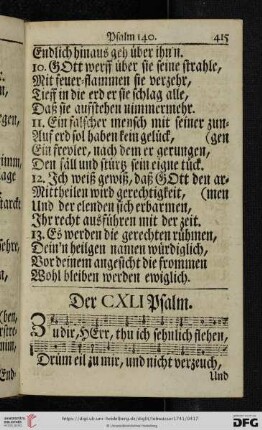 Psalm 140. 415
Endlich hinaus geh über ihn n.
10. GOtt werff über sie seine strahle,
Mit feuer-flammen sie verzehr,
Tieff in die erd er sie schlag alle,
Daß sie aufstehen nimmermehr.
11. Ein falscher mensch mit seiner zun-
Auf erd sol haben kein gelück, (gen
Ein frevler, nach dem er gerungen,
Den fäll und stürtz sein eigne tück.
12. Ich weiß gewiß, daß GOtt den ar-
Mittheilen wird gerechtigkeit, (men
Und der elenden sich erbarmen,
Ihr recht ausführen mit der zeit.
13. Es werden die gerechten rühmen,
Dein'n heilgen namen würdiglich,
Vor deinem angesicht die frommen
Wohl bleiben werden ewiglich.
Der CXLI Psalm.
Zu dir, HErr, thu ich sehnlich flehen,
Drum eil zu mir, und nicht verzeuch,
Und
https://digi.ub.uni-heidelberg.de/diglit/
DFG